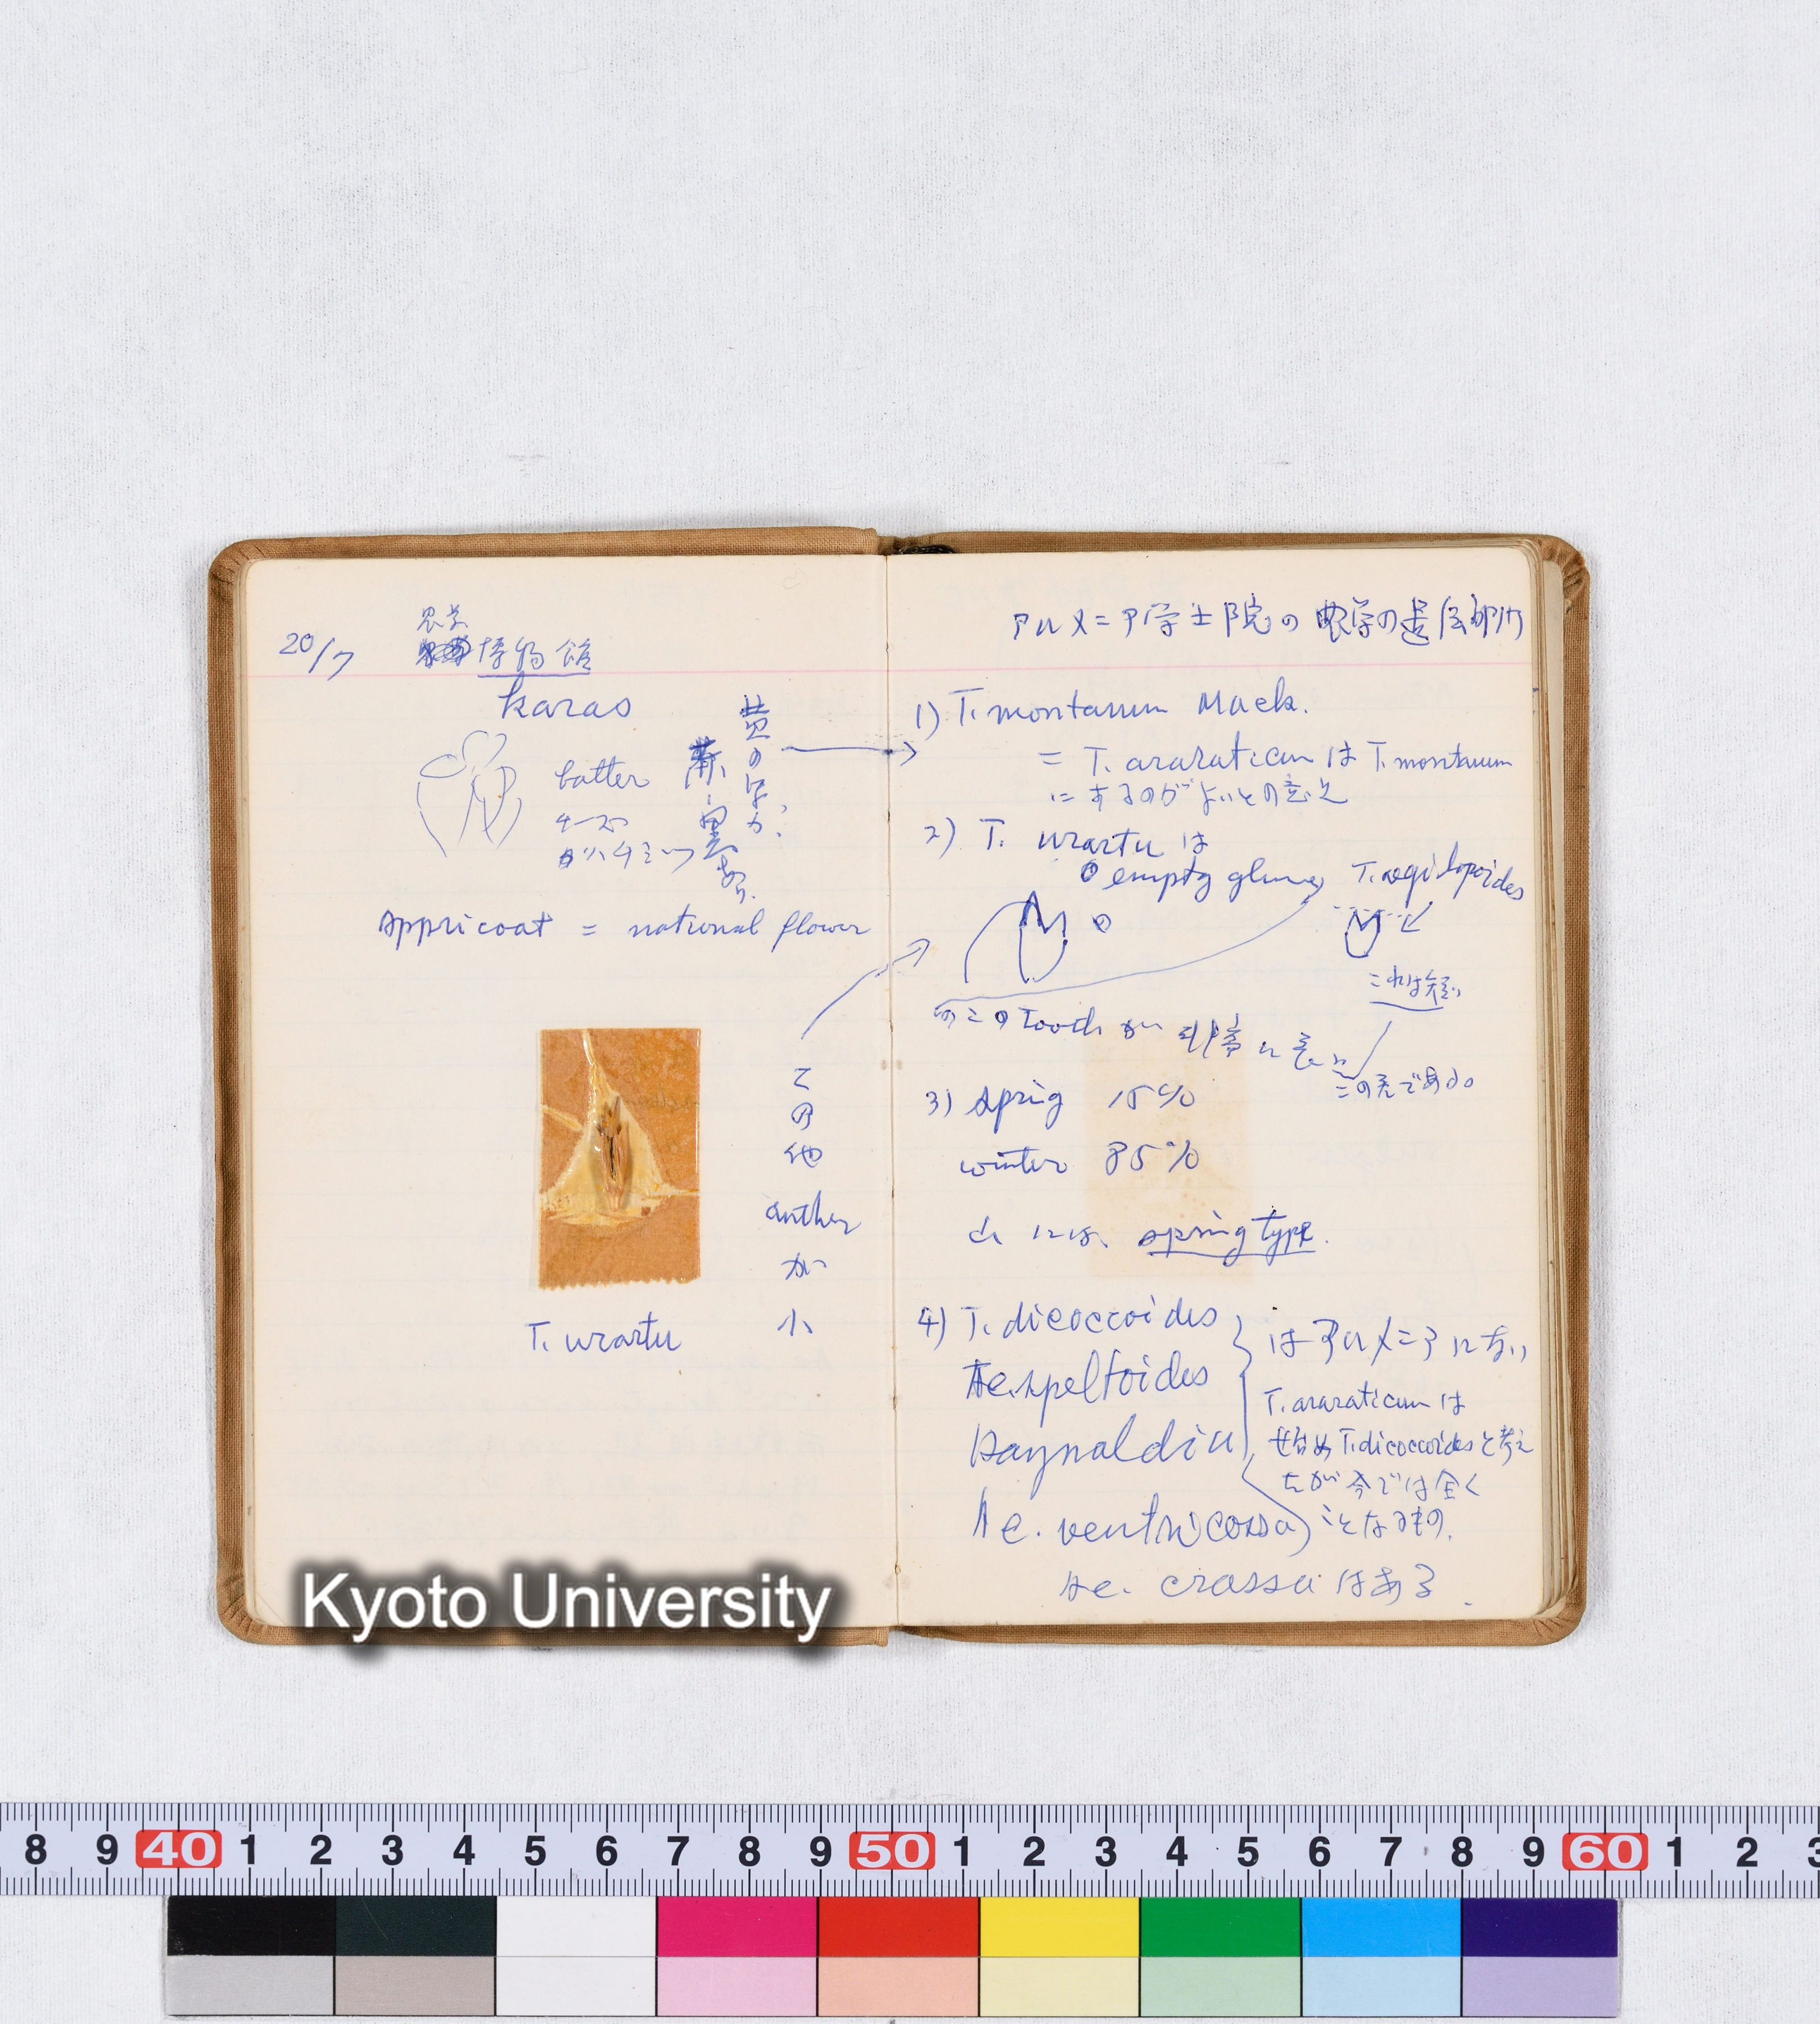 20/7
農学
博物館
karas
batter
チーズ
ハチミツ
黄の字か?
appricoat = national flower
この他antherが小
T. urartu
アルメニア学士院の農学の遺伝部門
1) T. montanum Mack.
= T. araraticum は T. montanum
にするのがよいとの意見
2) T. urartu は
empty glume, T. aegilopoides
これは短い
このtoothが非常に長い
この天である
3) spring 15%
winter 85%
には、spring type.
4) T. dicoccoides
Ae. speltoides
Haynaldia
Ae. ventricossa
はアルメニアにない
T. araraticum は
始め T. dicoccoides と考え
たが今では全く
ことなるもの.
Ae. crassa はある.
Kyoto University
8 9 40 1 2 3 4 5 6 7 8 9 50 1 2 3 4 5 6 7 8 9 60 1 2 3